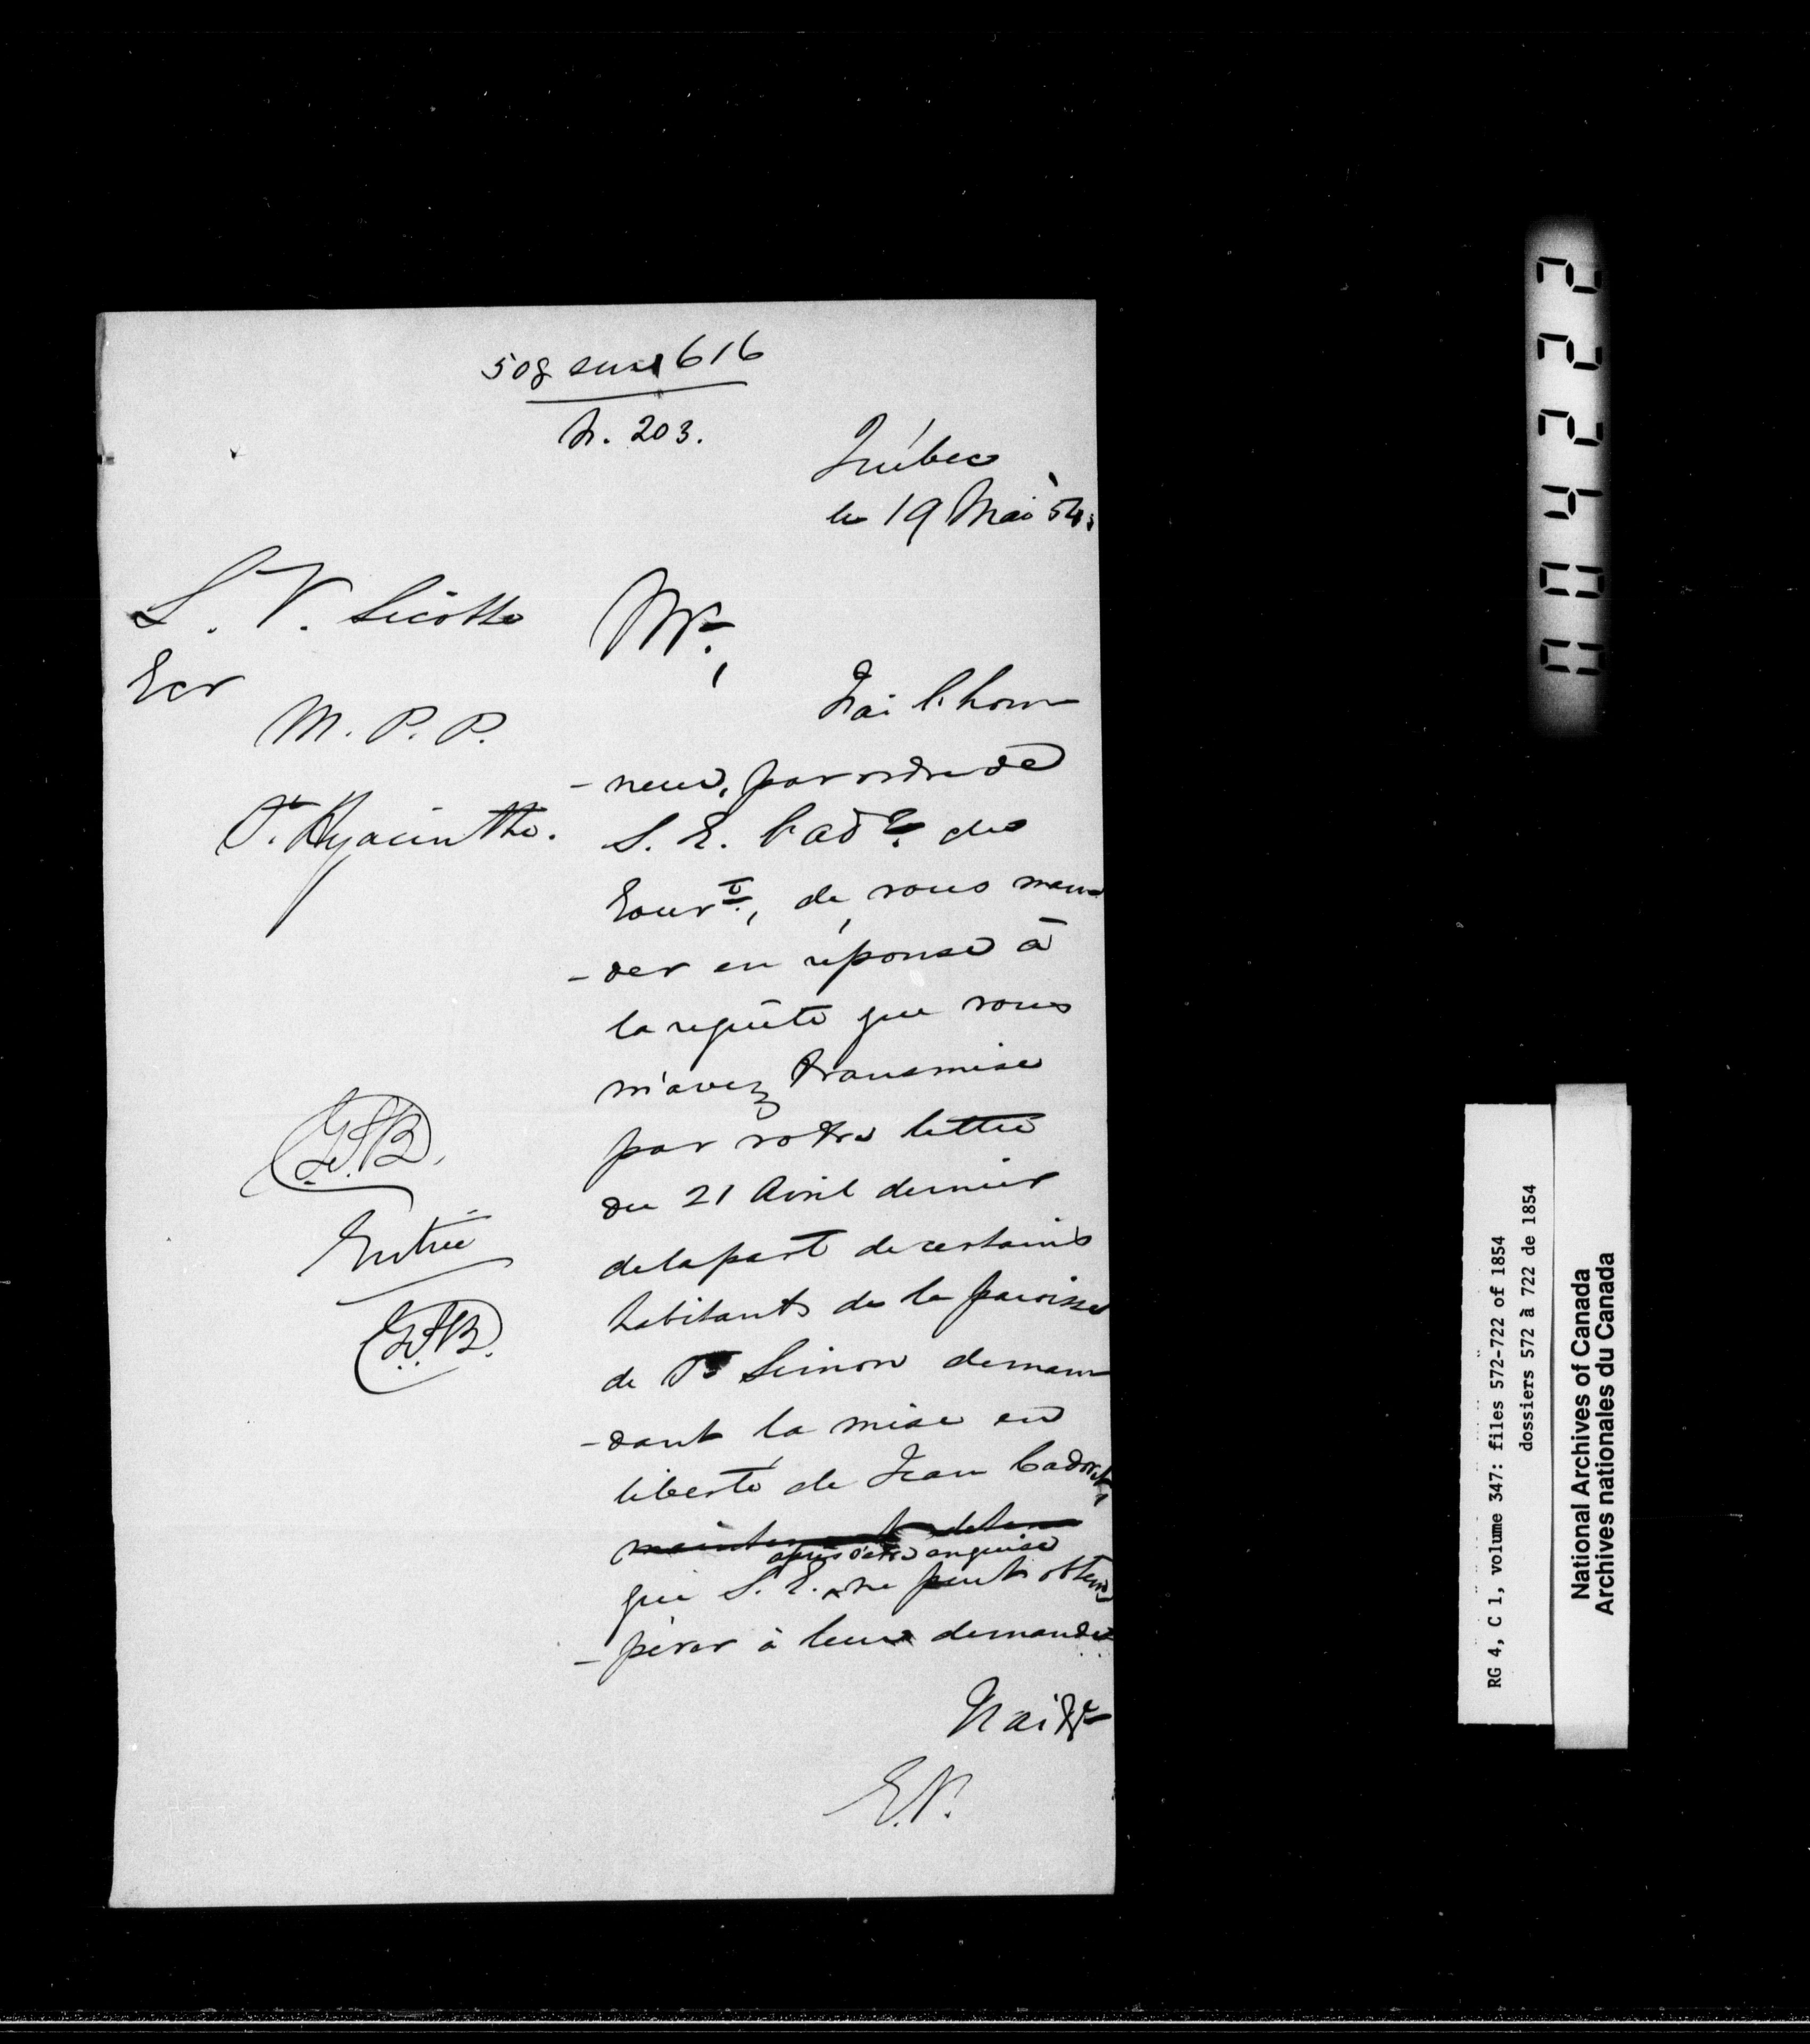 508 sur 616
N. 203.
Québec
le 19 Mai 54.
L. V. Sicotte
Ecr
M. P. P.
St. Hyacinthe.
Mr.,
J'ai l'hon
-neur, par ordre de
S. E. l'adr. du
Gouvt., de vous man
-der en réponse à
la requête que vous
m'avez transmise
par votre lettre
du 21 Avril dernier
de la part de certains
habitants de la paroisse
de St Simon deman
-dant la mise en
liberté de Jean Cadoret,
maintenant detenu
après s'être enquise
que S. E. ne peut obtem
-pérer à leur demande.
J'ai &c
E.P.
G.F.B.
Entrée
G.F.B.
222400
RG 4, C 1, volume 347: files 572-722 of 1854
dossiers 572 à 722 de 1854
National Archives of Canada
Archives nationales du Canada